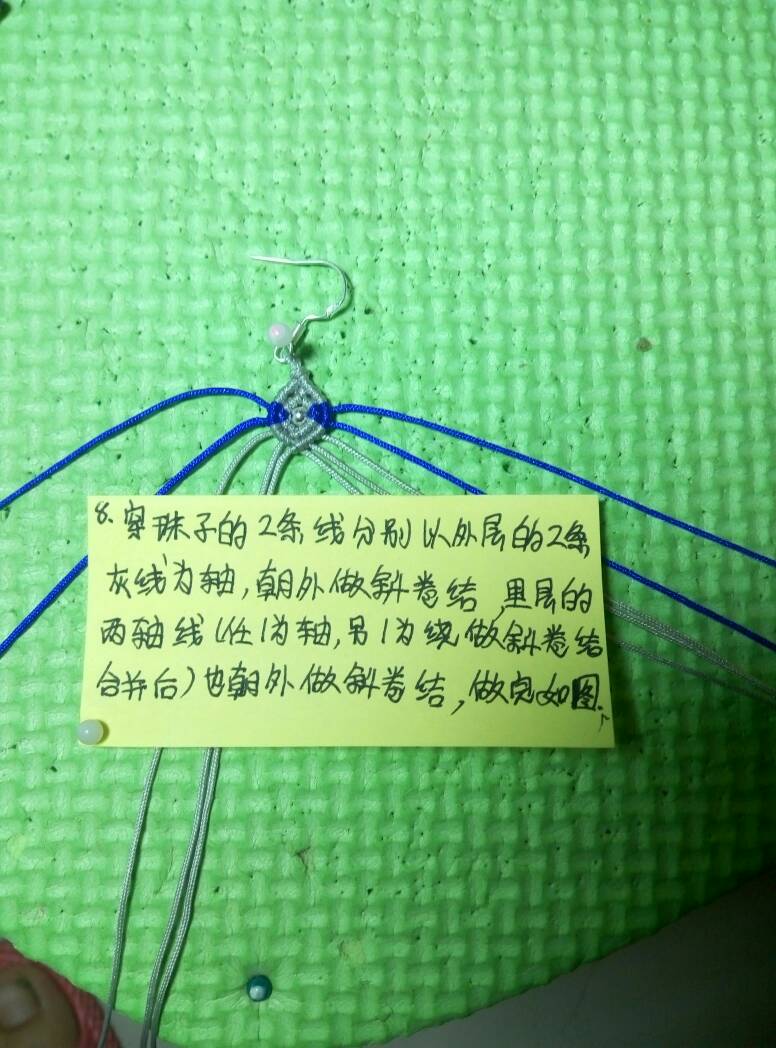 8、穿珠子的2条线分别以外层的2条
灰线为轴,朝外做斜卷结,里层的
两轴线(任1为轴,另1为绕做斜卷结
合并后)也朝外做斜卷结,做完如图;